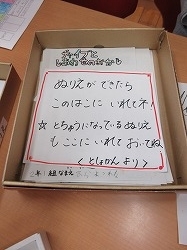 ぬりえができたら
このはこに いれてネ!
☆とちゅうになっているぬりえ
もここにいれておいてね
<としょかんより>
2年 組 なまえ